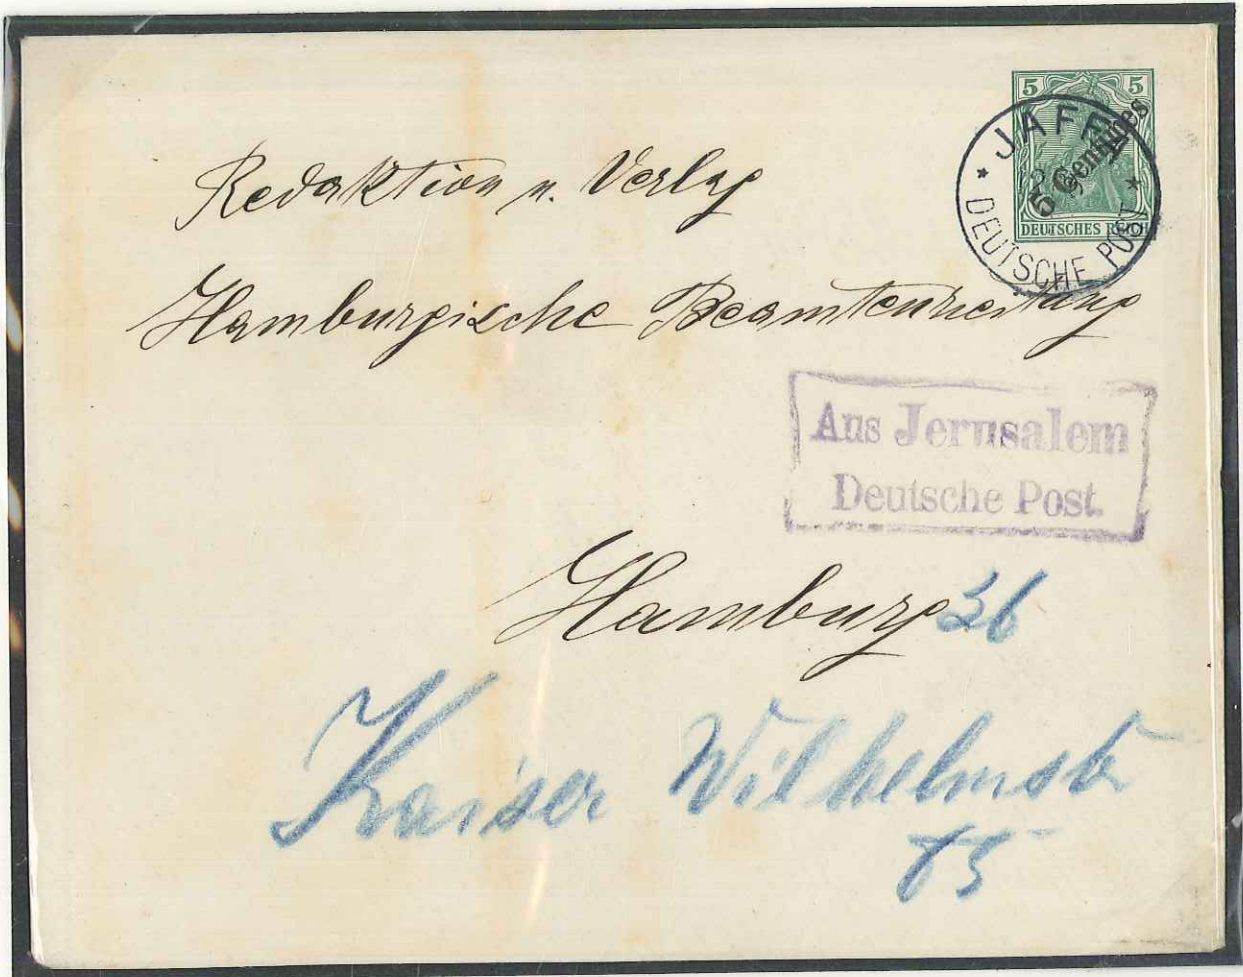 5 5
JAFFA
5 Centimes
DEUTSCHES REICH
DEUTSCHE POST
Redaktion u. Verlag
Hamburgische Beamtenzeitung
Aus Jerusalem
Deutsche Post.
Hamburg 36
Kaiser Wilhelmstr